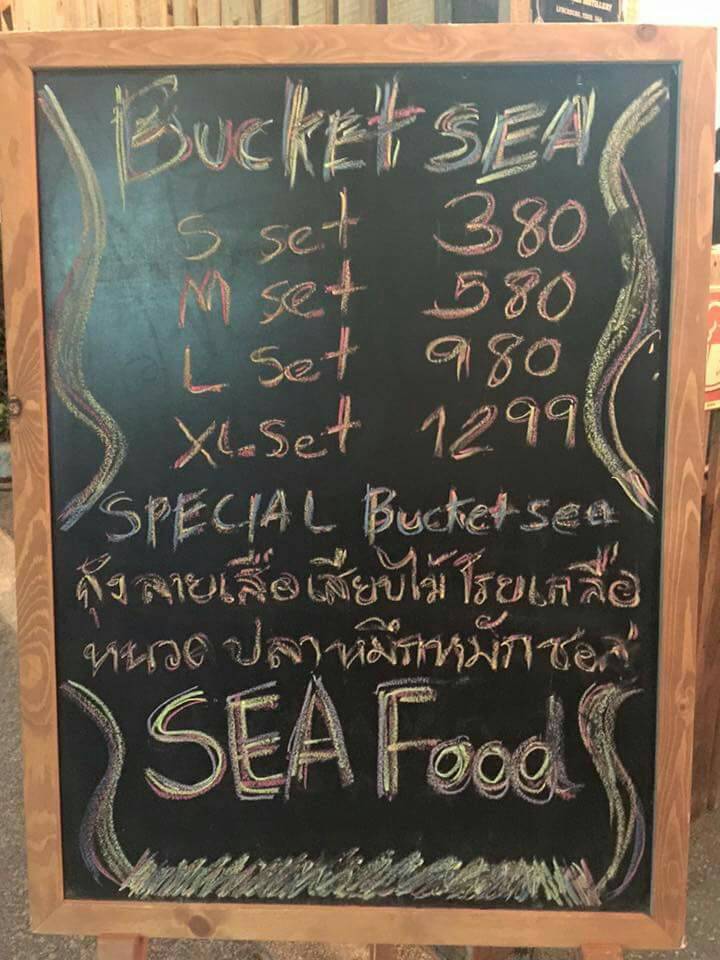 Bucket SEA
S set 380
M set 580
L set 980
XL set 1299
SPECIAL Bucket sea
กุ้งลายเสือเสียบไม้โรยเกลือ
หนวดปลาหมึกหมักซอส
SEA Food